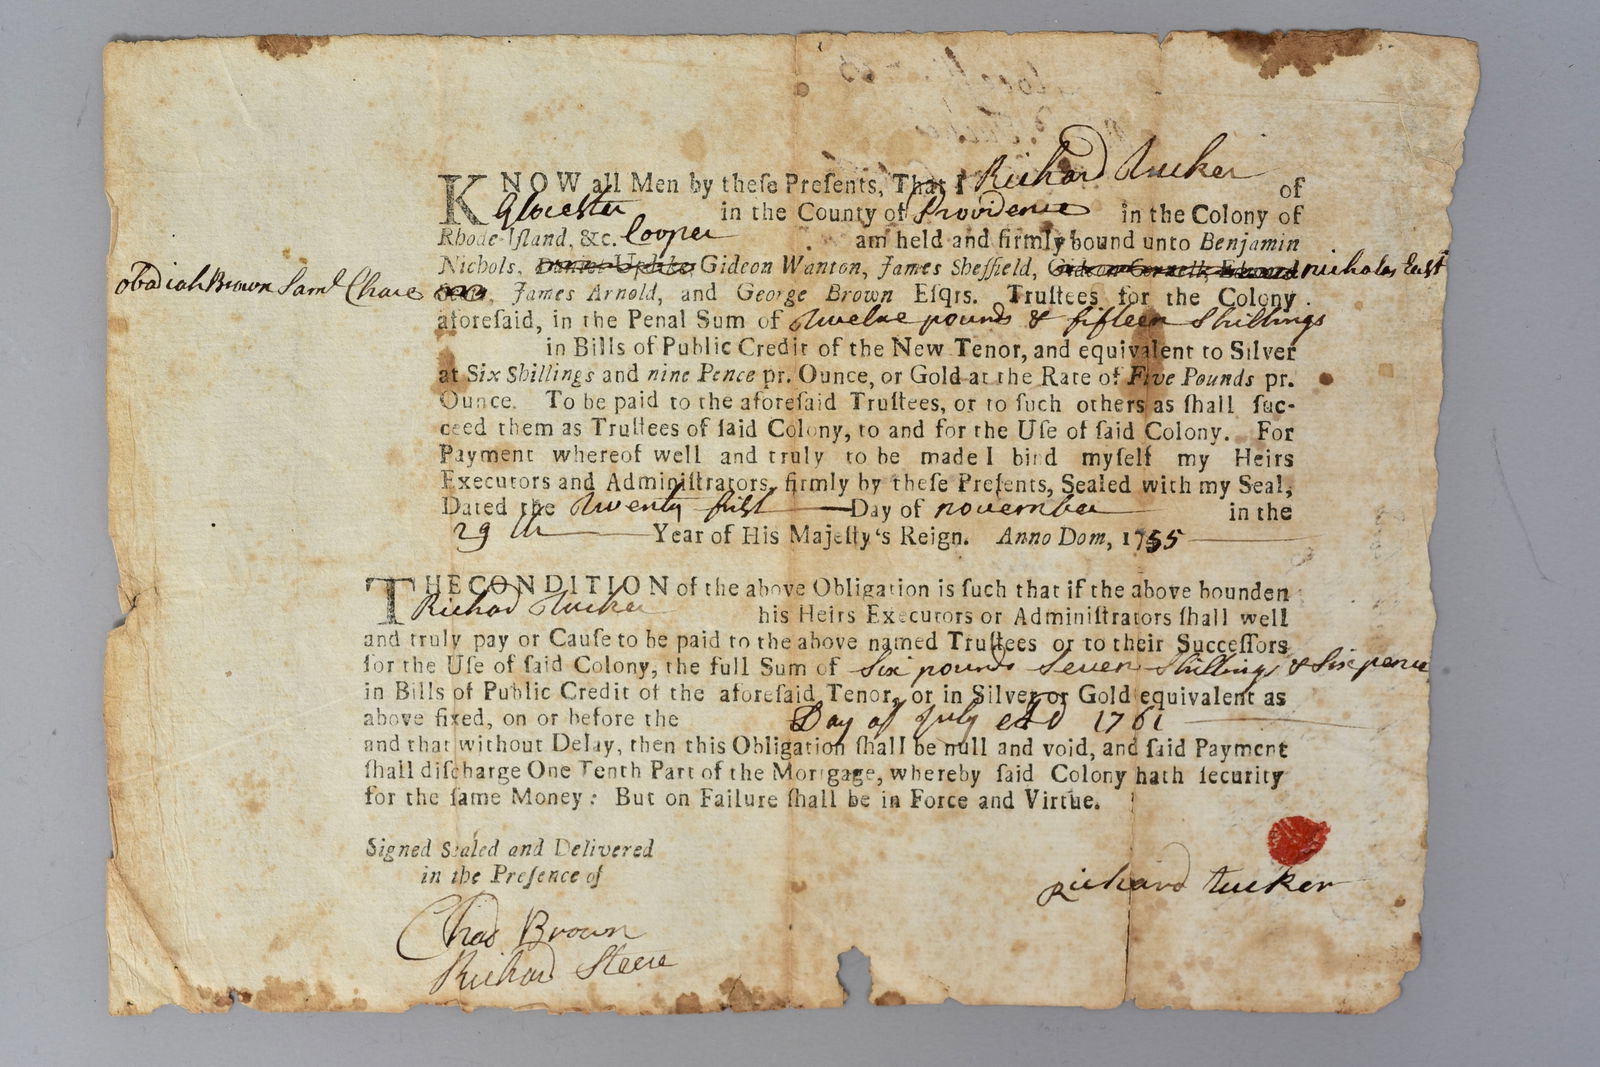 KNOW all Men by theſe Preſents, That I Richard Tucker of
Glocester in the County of Providence in the Colony of
Rhode-Iſland, &c. Cooper am held and firmly bound unto Benjamin
Nichols, Daniel Updike, Gideon Wanton, James Sheffield, Gideon Cornell, Edward nicholas East
obadiah Brown Saml. Chace James Arnold, and George Brown Eſqrs. Truſtees for the Colony
aforeſaid, in the Penal Sum of Twelve pounds & fifteen Shillings
in Bills of Public Credit of the New Tenor, and equivalent to Silver
at Six Shillings and nine Pence pr. Ounce, or Gold at the Rate of Five Pounds pr.
Ounce. To be paid to the aforeſaid Truſtees, or to ſuch others as ſhall ſuc-
ceed them as Truſtees of ſaid Colony, to and for the Uſe of ſaid Colony. For
Payment whereof well and truly to be made I bind myſelf my Heirs
Executors and Adminiſtrators, firmly by theſe Preſents, Sealed with my Seal,
Dated the Twenty first Day of november in the
29th Year of His Majeſty's Reign. Anno Dom, 1755
THE CONDITION of the above Obligation is ſuch that if the above bounden
Richard Tucker his Heirs Executors or Adminiſtrators ſhall well
and truly pay or Cauſe to be paid to the above named Truſtees or to their Succeſſors
for the Uſe of ſaid Colony, the full Sum of Six pounds Seven Shillings & Six pence
in Bills of Public Credit of the aforeſaid Tenor, or in Silver or Gold equivalent as
above fixed, on or before the Day of July 1761
and that without Delay, then this Obligation ſhall be null and void, and ſaid Payment
ſhall diſcharge One Tenth Part of the Mortgage, whereby ſaid Colony hath ſecurity
for the ſame Money: But on Failure ſhall be in Force and Virtue.
Signed Sealed and Delivered
in the Preſence of
Richard Tucker
Chad Brown
Richard Steere